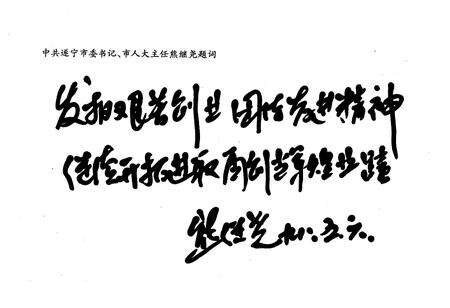 中共遂宁市委书记、市人大主任熊继尧题词
发扬艰苦创业团结奋进精神
继续开拓进取再创辉煌业绩
熊继尧 九八.五.六.